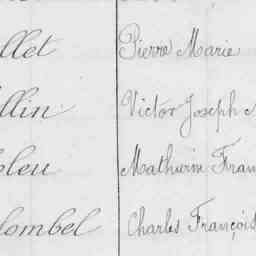 llet Pierre Marie
llin Victor Joseph
bleu Mathurin Fran
lombel Charles François